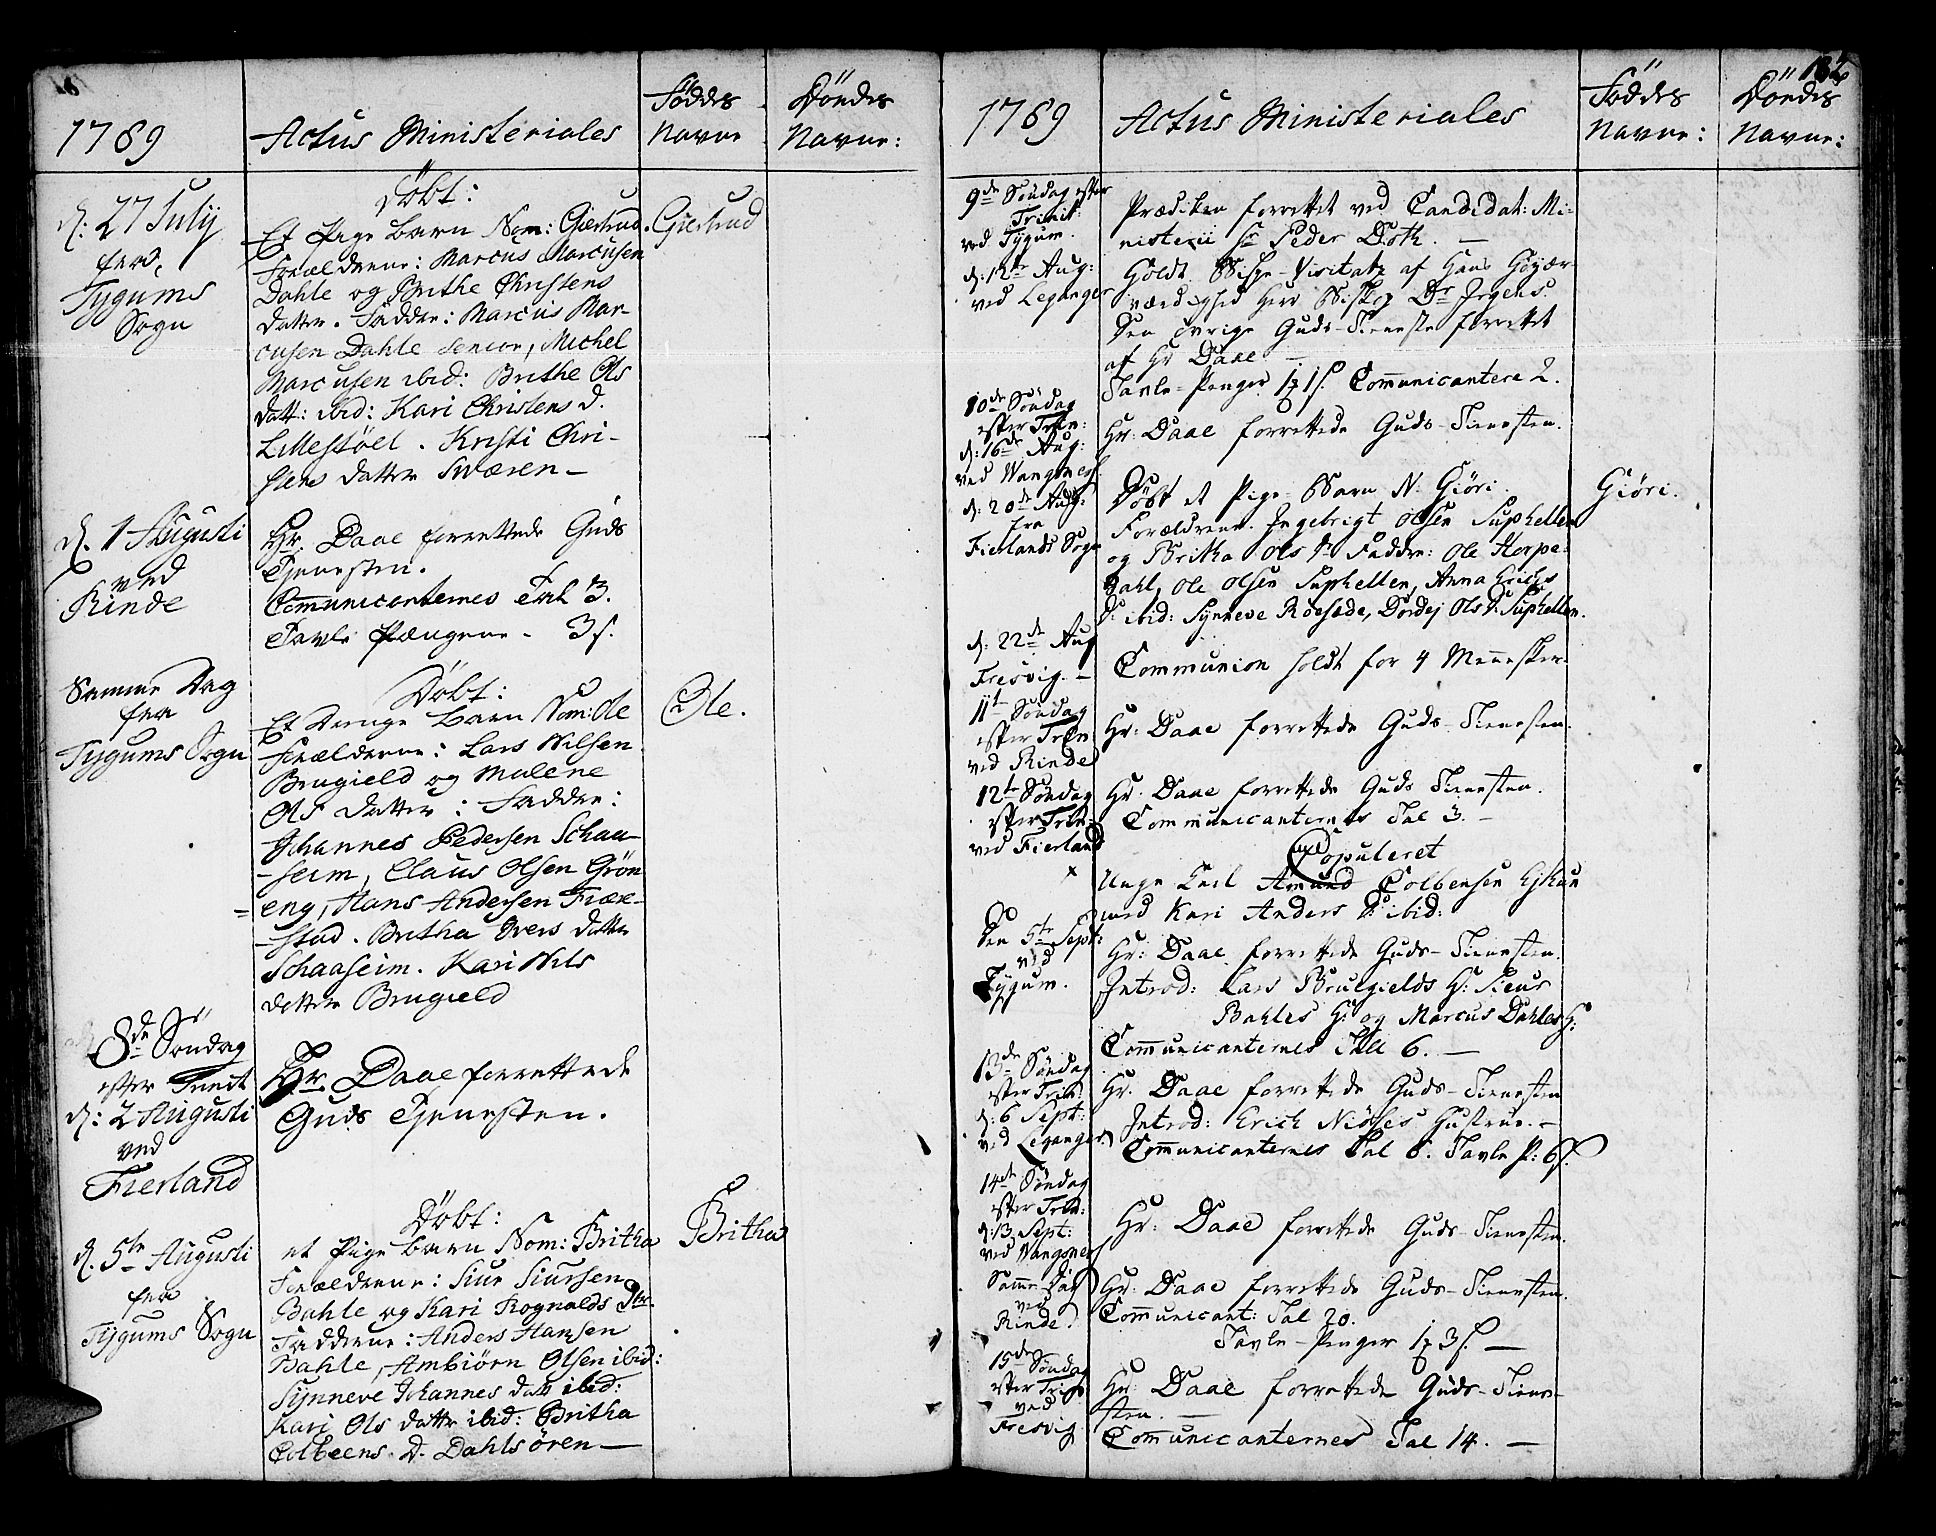 1789
Actus Ministeriales
Föddes
Navne
Döndes
Navne:
d: 27 Julij
fra
Tygums
Sogn
Döbt:
Et Pige Barn Nom: Giertrud.
Forældrene: Marcus Marcusen
Dahle og Brithe Christens
datter. Faddre: Marcus Mar-
cusen Dahle senior, Michel
Marcusen ibid: Brithe Ols
datt: ibid: Kari Christens d.
Lillestöel. Kristi Chri-
stens datter Sværen -
Giertrud
d. 1 Augusti
ved
Rinde
Hr. Daae forrettede Guds
Tjenesten.
Communicanternes Tal 3.
Tavle Pængene - 3 s.
Samme Dag
fra
Tygums Sogn
Döbt:
Et Drenge Barn Nom: Ole
Forældrene: Lars Nilsen
Brugield og Malene
Ols datter: Faddre:
Johannes Pedersen Schaa-
-seim, Claus Olsen Grön
=eng, Hans Andersen Fiære-
-stad. Britha Ivers datter
Schaaseim. Kari Nils
datter Brugield
Ole.
8de Söndag
efter Trinit
d: 2 Augusti
ved
Fierland
Hr. Daae forrettede
Guds Tjenesten.
d. 5te Augusti
fra
Tygums Sogn
Döbt:
et Pige Barn Nom: Britha
Forældrene: Siur Siursen
Bahle og Kari Rognalds Dtr.
Faddrene: Anders Hansen
Bahle, Ambiörn Olsen ibid:
Synneve Johannes datt ibid:
Kari Ols datter ibid: Britha
Colbeens D. Dahlsören -
Britha
1789
Actus Ministeriales
Föddes
Navne:
Döndes
Navne:
9de Söndag efter
Trinit:
ved Tygum.
d: 12te Aug:
ved Leganger
Prædiken forrettet ved Candidat: Mi-
nisterii Sr Peder Doth. -
Holdt Bispe-Visitatz af Hans Höyær-
værdighed Herr Biskop Dr Irgens.
Den övrige Guds-Tieneste forrettet
af Hr Daae -
Tavle-Penger 1 s. Communicantere 2.
10de Söndag
efter Trin:
d: 16de Aug:
ved Wangsnes
Hr: Daae forrettede Guds-Tienesten.
d: 20de Aug:
fra
Fierlands Sogn
Döbt et Pige-Barn N: Giöri.
Forældrene. Ingebrigt Olsen Suphellen
og Britha Ols Dr. Faddre: Ole Horpe-
dahl, Ole Olsen Suphellen, Anna Erichs
Dr. ibid: Synneve Roesæde, Dordej Ols Dr. Suphellen.
Giöri.
d: 22de Aug
Fresvig. -
Communion holdt for 4 Mennesker.
11te Söndag
efter Trin
ved Rinde
Hr: Daae forrettede Guds-Tienesten.
12te Söndag
efter Trin:
ved Fierland
Hr. Daae forrettede Guds Tienesten.
Communicanternes Tal 3. -
Copuleret
Unge Karl Amund Colbensen
med Kari Anders Dr ibid:
Den 5te Sept:
ved
Tygum.
Hr: Daae forrettede Guds-Tienesten.
Introd: Lars Brugields H: Siur
Bahles H: og Marcus Dahles H:
Communicanternes Tall 6. -
13de Söndag
efter Trin:
d: 6 Sept:
ved Leganger
Hr. Daae forrettede Guds-Tienesten
Introd: Erich Niöses Hustrue. -
Communicanternes Tal 6. Tavle P: 6 s.
14de Söndag
efter Trin:
d: 13 Sept:
ved Wangsnes
Hr: Daae forrettede Guds-Tienesten.
Samme Dag
ved
Rinde
Hr: Daae forrettede Guds-Tienesten.
Communicant: Tal 20.
Tavle-Penger 3 s. -
15de Söndag
efter Trin
ved
Fresvig
Hr: Daae forrettede Guds-Tiene-
sten. -
Communicanternes Tal 14. -